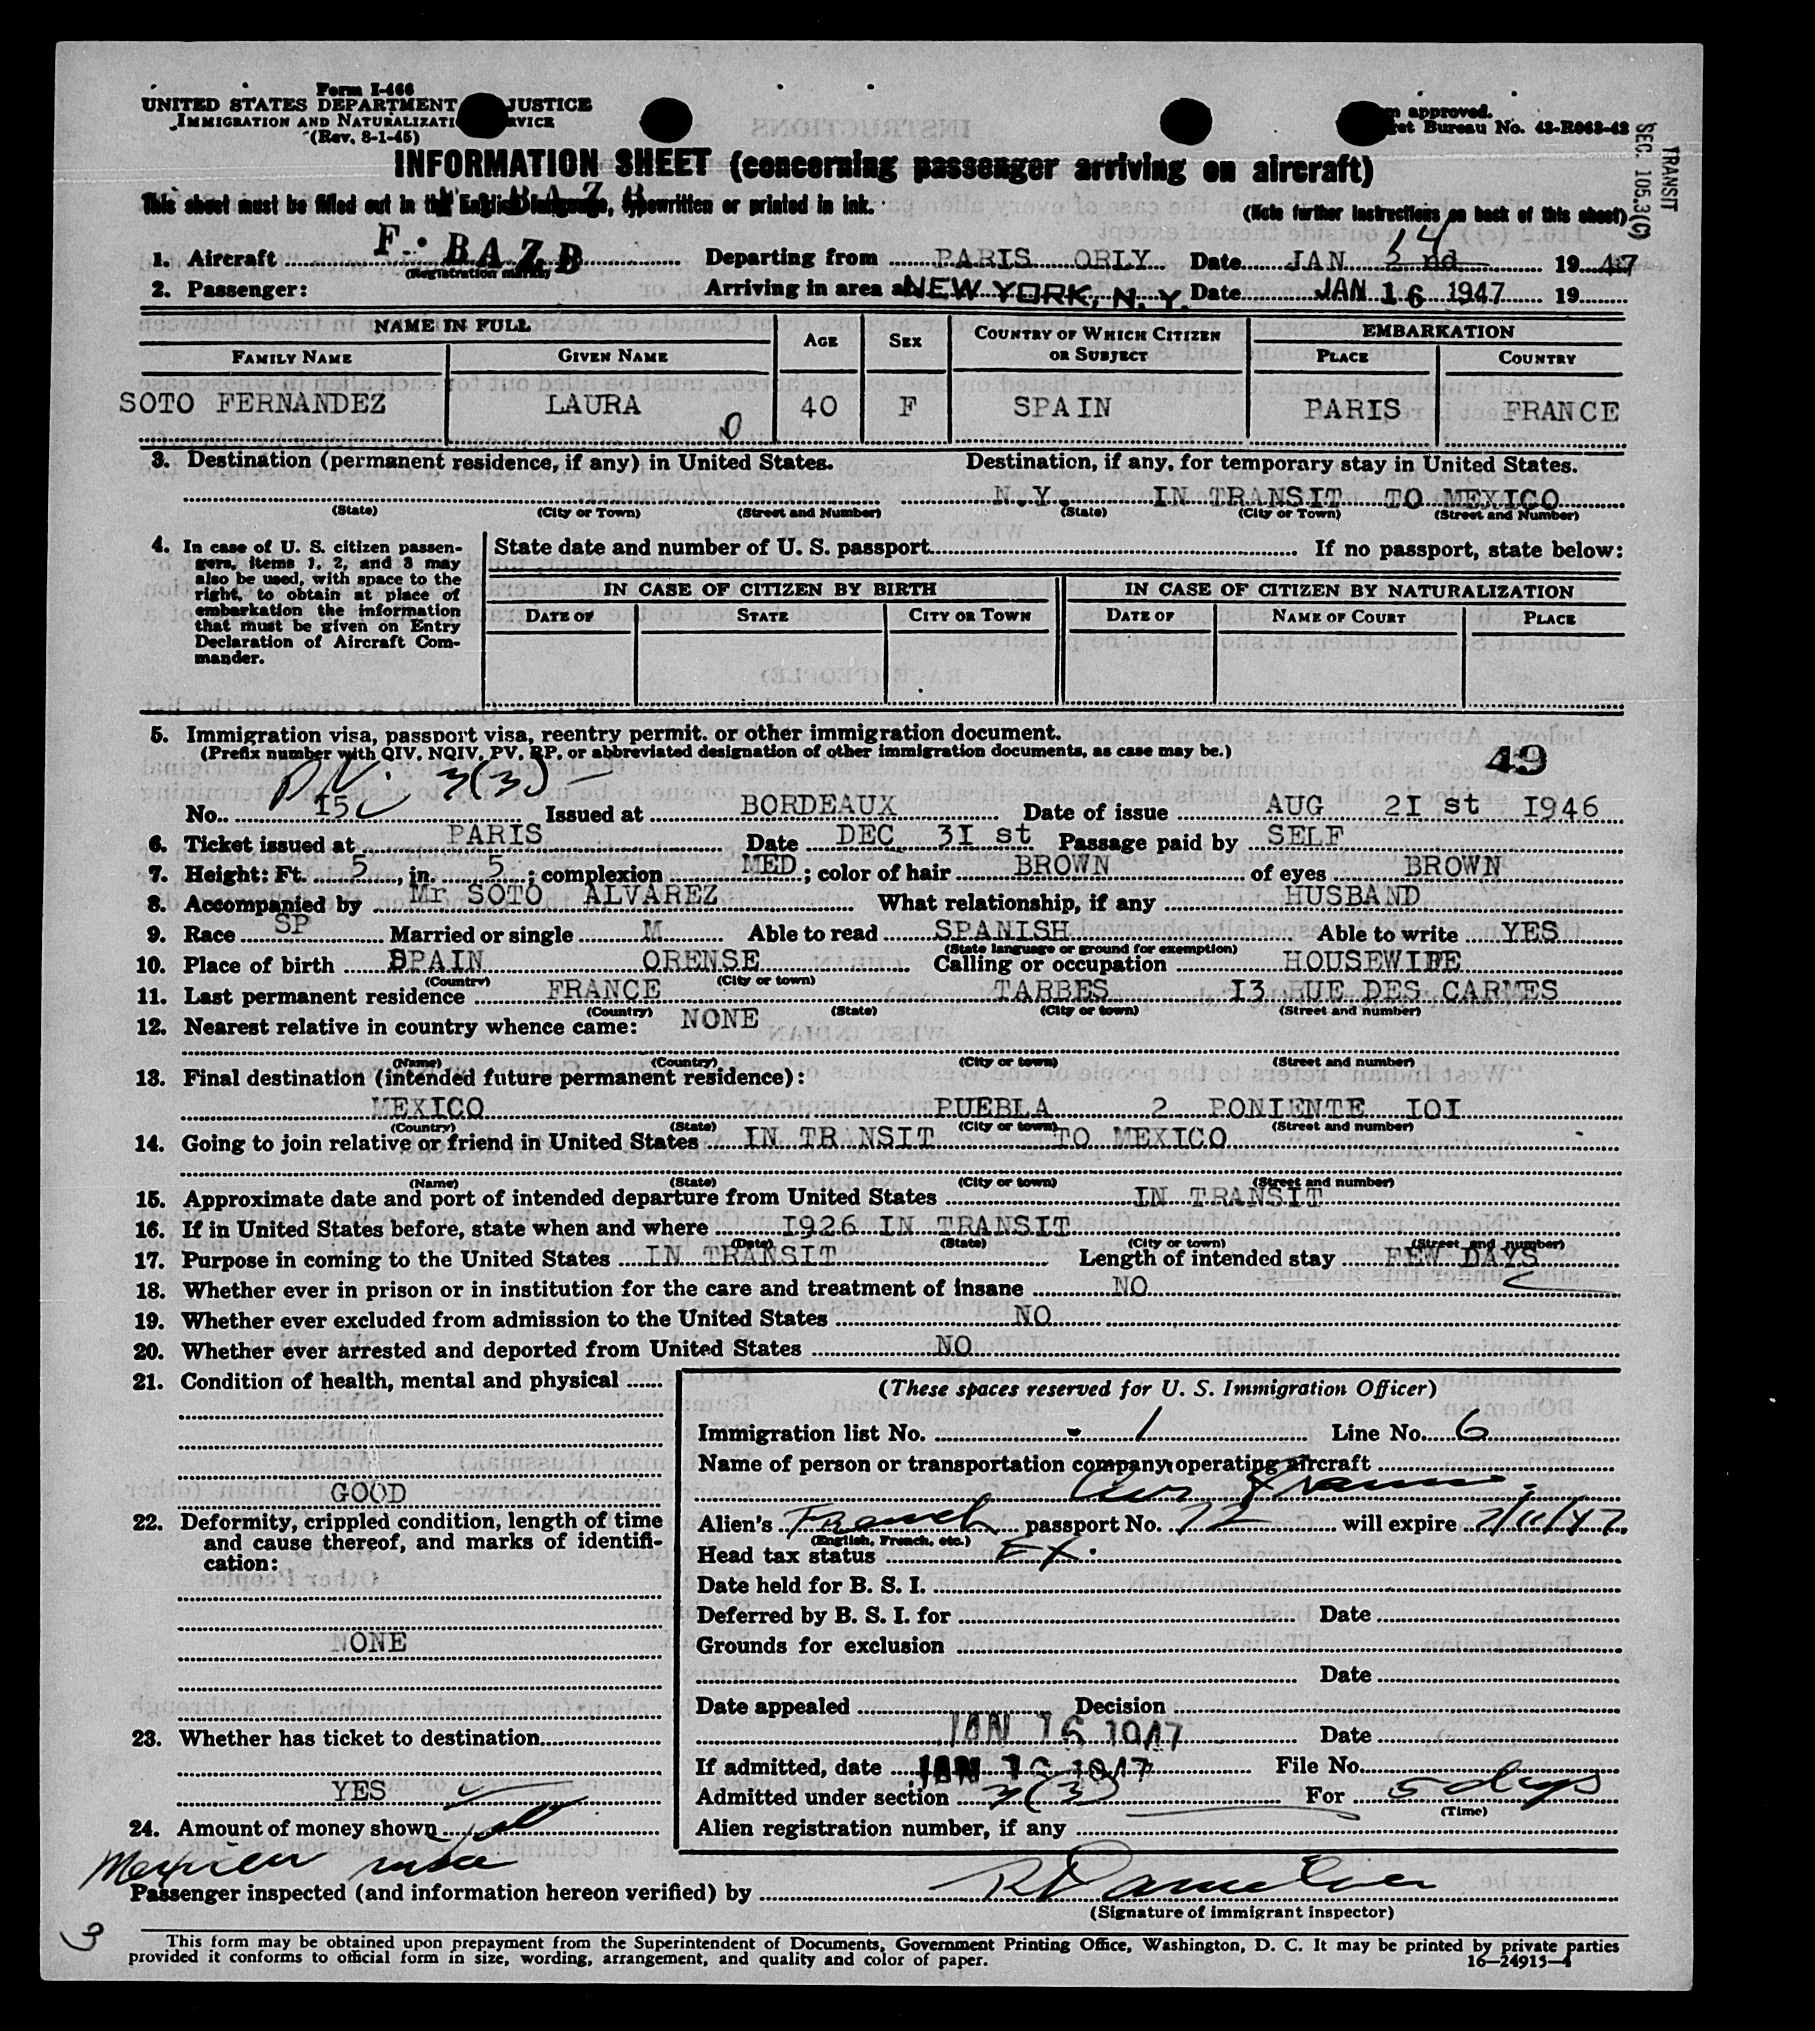 Form I-466
UNITED STATES DEPARTMENT JUSTICE
IMMIGRATION AND NATURALIZATI RVICE
(Rev. 8-1-45)
approved.
et Bureau No. 43-R063-43
TRANSIT
SEC. 105.3(C)
INFORMATION SHEET (concerning passenger arriving on aircraft)
This sheet must be filled out in the English language, typewritten or printed in ink.
(Note further instructions on back of this sheet)
1. Aircraft F. BAZB Departing from PARIS ORLY Date JAN 2 nd 14 19 47
(Registration marks)
2. Passenger: Arriving in area at NEW YORK, N. Y. Date JAN 16 1947 19
NAME IN FULL AGE SEX COUNTRY OF WHICH CITIZEN OR SUBJECT EMBARKATION
FAMILY NAME GIVEN NAME PLACE COUNTRY
SOTO FERNANDEZ LAURA 40 F SPAIN PARIS FRANCE
0
3. Destination (permanent residence, if any) in United States. Destination, if any, for temporary stay in United States.
N.Y. IN TRANSIT TO MEXICO
(State) (City or Town) (Street and Number) (State) (City or Town) (Street and Number)
4. In case of U. S. citizen passen-
gers, items 1, 2, and 3 may
also be used, with space to the
right, to obtain at place of
embarkation the information
that must be given on Entry
Declaration of Aircraft Com-
mander.
State date and number of U. S. passport If no passport, state below:
IN CASE OF CITIZEN BY BIRTH IN CASE OF CITIZEN BY NATURALIZATION
DATE OF STATE CITY OR TOWN DATE OF NAME OF COURT PLACE
5. Immigration visa, passport visa, reentry permit, or other immigration document.
(Prefix number with QIV, NQIV, PV, RP, or abbreviated designation of other immigration documents, as case may be.)
49
PV. 3(3)
No. 15 Issued at BORDEAUX Date of issue AUG 2I st I946
6. Ticket issued at PARIS Date DEC. 3I st Passage paid by SELF
7. Height: Ft. 5, in. 5; complexion MED; color of hair BROWN of eyes BROWN
8. Accompanied by Mr SOTO ALVAREZ What relationship, if any HUSBAND
9. Race SP Married or single M Able to read SPANISH Able to write YES
(State language or ground for exemption)
10. Place of birth SPAIN ORENSE Calling or occupation HOUSEWIFE
(Country) (City or town)
11. Last permanent residence FRANCE TARBES I3 RUE DES CARMES
(Country) (State) (City or town) (Street and number)
12. Nearest relative in country whence came: NONE
(Name) (Country) (City or town) (Street and number)
13. Final destination (intended future permanent residence):
MEXICO PUEBLA 2 PONIENTE IOI
(Country) (State) (City or town) (Street and number)
14. Going to join relative or friend in United States IN TRANSIT TO MEXICO
(Name) (State) (City or town) (Street and number)
15. Approximate date and port of intended departure from United States IN TRANSIT
16. If in United States before, state when and where I926 IN TRANSIT
(Date) (State) (City or town) (Street and number)
17. Purpose in coming to the United States IN TRANSIT Length of intended stay FEW DAYS
18. Whether ever in prison or in institution for the care and treatment of insane NO
19. Whether ever excluded from admission to the United States NO
20. Whether ever arrested and deported from United States NO
21. Condition of health, mental and physical
GOOD
22. Deformity, crippled condition, length of time
and cause thereof, and marks of identifi-
cation:
NONE
23. Whether has ticket to destination
YES
24. Amount of money shown
(These spaces reserved for U. S. Immigration Officer)
Immigration list No. 1 Line No. 6
Name of person or transportation company operating aircraft
Air France
Alien's French passport No. 72 will expire 7/11/47
(English, French, etc.)
Head tax status EX.
Date held for B. S. I.
Deferred by B. S. I. for Date
Grounds for exclusion
Date
Date appealed Decision
JAN 16 1947 Date
If admitted, date JAN 16 1947 File No.
Admitted under section 3(3) For 5 days
(Time)
Alien registration number, if any
Mexican visa
Passenger inspected (and information hereon verified) by
(Signature of immigrant inspector)
3
This form may be obtained upon prepayment from the Superintendent of Documents, Government Printing Office, Washington, D. C. It may be printed by private parties
provided it conforms to official form in size, wording, arrangement, and quality and color of paper. 16—24915-4